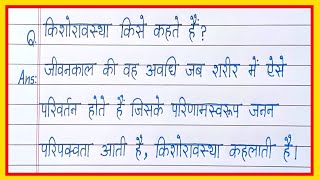 Q. किशोरावस्था किसे कहते हैं?
Ans: जीवनकाल की वह अवधि जब शरीर में ऐसे
परिवर्तन होते हैं जिसके परिणामस्वरूप जनन
परिपक्वता आती है, किशोरावस्था कहलाती है।